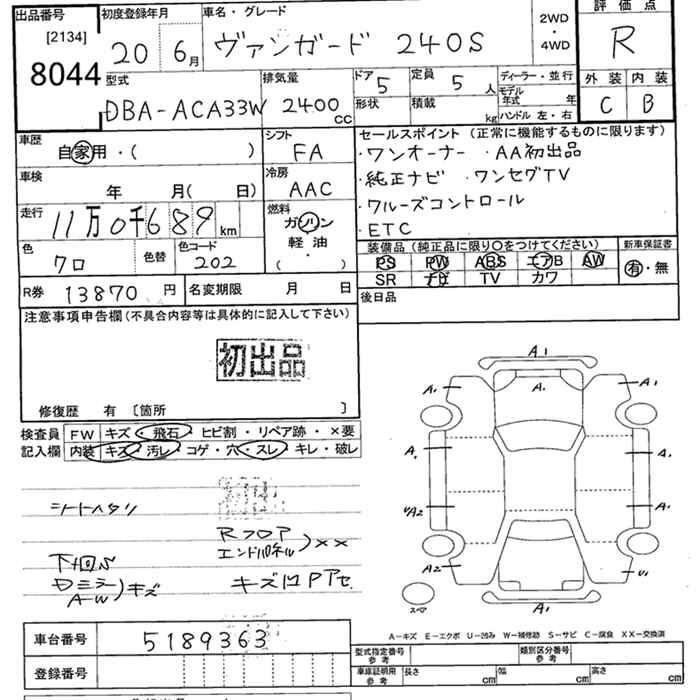 出品番号 [2134] 8044
初度登録年月 20 6月
車名・グレード ヴァンガード 240S
2WD・4WD
評価点 R
外装 C 内装 B
型式 DBA-ACA33W
排気量 2400 CC
ドア 5 形状
定員 5人 積載 kg
ディーラー・並行
モデル年式 年
ハンドル 左・右
車歴 自家用・( )
シフト FA
車検 年 月( 日)
冷房 AAC
走行 11万0千689 km
燃料 ガソリン 軽油 ( ・ )
色 クロ 色替 色コード 202
R券 13870円 名変期限 月 日
セールスポイント(正常に機能するものに限ります)
・ワンオーナー ・AA初出品
・純正ナビ ・ワンセグTV
・クルーズコントロール
・ETC
装備品(純正品に限り○をつけてください) 新車保証書
PS PW ABS エアB AW 有・無
SR ナビ TV カワ
後日品
注意事項申告欄(不具合内容等は具体的に記入して下さい)
初出品
修復歴 有 〔箇所 〕
検査員 FW キズ・飛石・ヒビ割・リペア跡・×要
記入欄 内装 キズ・汚レ・コゲ・穴・スレ・キレ・破レ
シートヘタリ
Rフロア
エンドパネル )××
下回S
Dミラー
AW )キズ
キズ凹Pアセ
A1
A1 A1 A1
A1 A1
UA2 A1
A2 U1
A1
スペア
A-キズ E-エクボ U-凹み W-補修跡 S-サビ C-腐食 XX-交換済
車台番号 5189363
登録番号
型式指定番号 参考 類別区分番号 参考
車庫証明用 参考 長さ cm 幅 cm 高さ cm